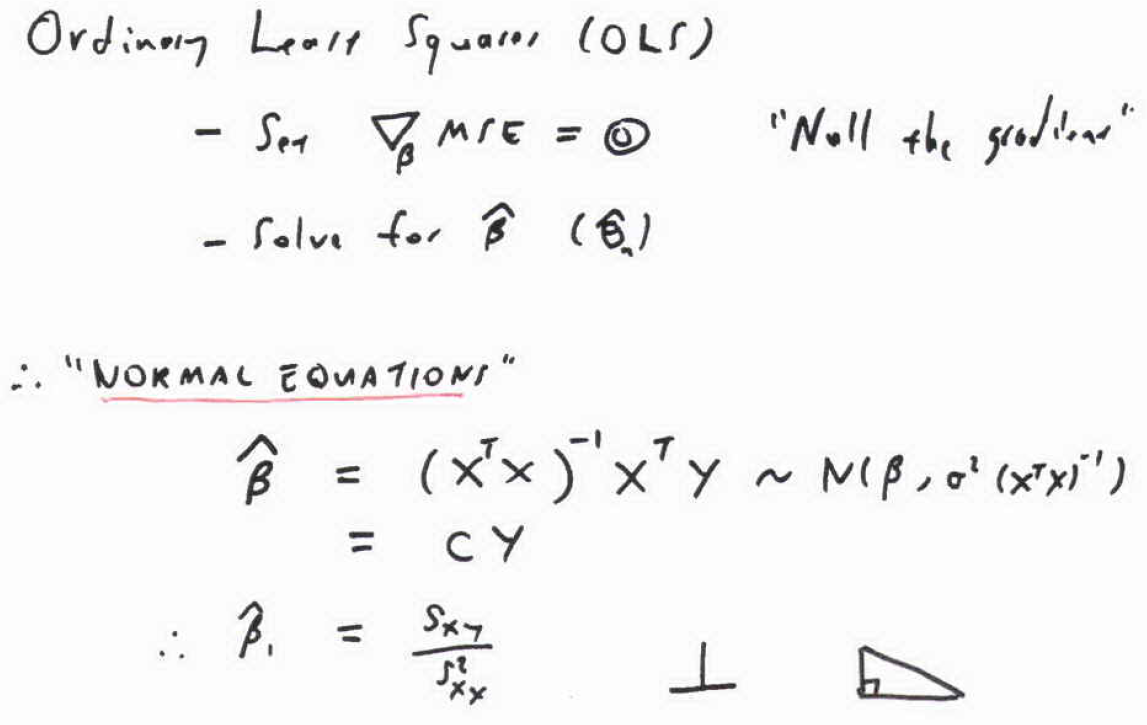 Ordinary Least Squares (OLS)
- Set ∇_β MSE = 0 "Null the gradient"
- Solve for β̂ (β̂ₙ)
∴ "NORMAL EQUATIONS"
β̂ = (XᵀX)⁻¹ XᵀY ~ N(β, σ² (XᵀX)⁻¹)
= CY
∴ β̂₁ = S_xy / S²_xx ⊥